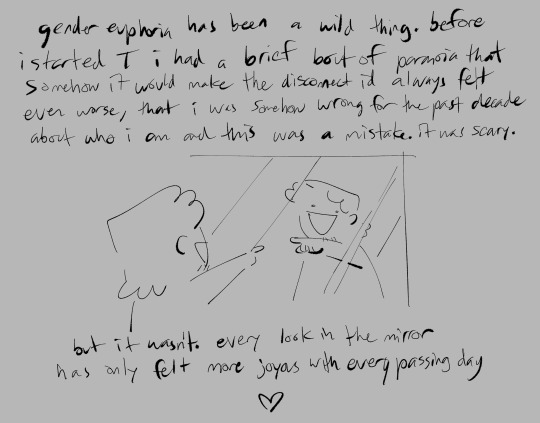 gender euphoria has been a wild thing. before
i started T i had a brief bout of paranoia that
somehow it would make the disconnect i'd always felt
even worse, that i was somehow wrong for the past decade
about who i am and this was a mistake. it was scary.
but it wasn't. every look in the mirror
has only felt more joyous with every passing day